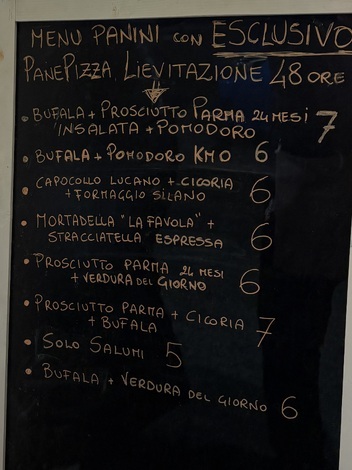 MENU PANINI CON ESCLUSIVO
PANEPIZZA LIEVITAZIONE 48 ORE
• BUFALA + PROSCIUTTO PARMA 24 MESI
INSALATA + POMODORO 7
• BUFALA + POMODORO KM0 6
• CAPOCOLLO LUCANO + CICORIA
+ FORMAGGIO SILANO 6
• MORTADELLA "LA FAVOLA" +
STRACCIATELLA ESPRESSA 6
• PROSCIUTTO PARMA 24 MESI
+ VERDURA DEL GIORNO 6
• PROSCIUTTO PARMA + CICORIA
+ BUFALA 7
• SOLO SALUMI 5
• BUFALA + VERDURA DEL GIORNO 6